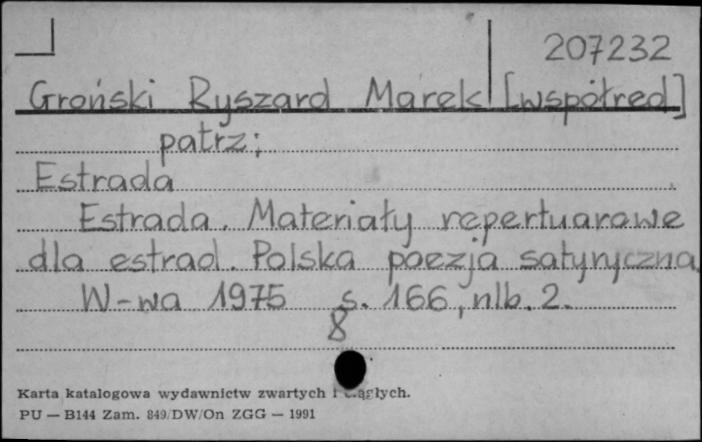 207232
Groński Ryszard Marek [współred]
patrz;
Estrada
Estrada. Materiały repertuarowe
dla estrad. Polska poezja satyryczna
W-wa 1975 s. 166, nlb. 2.
8
Karta katalogowa wydawnictw zwartych i ciągłych.
PU — B144 Zam. 849/DW/On ZGG — 1991